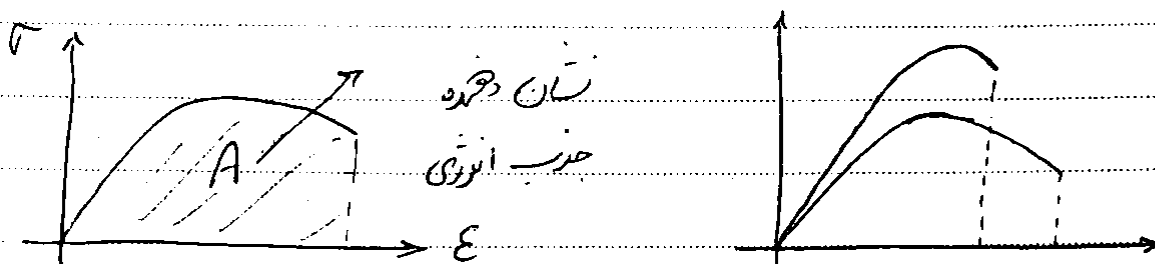 σ
نشان دهنده
A
جذب انرژی
ε